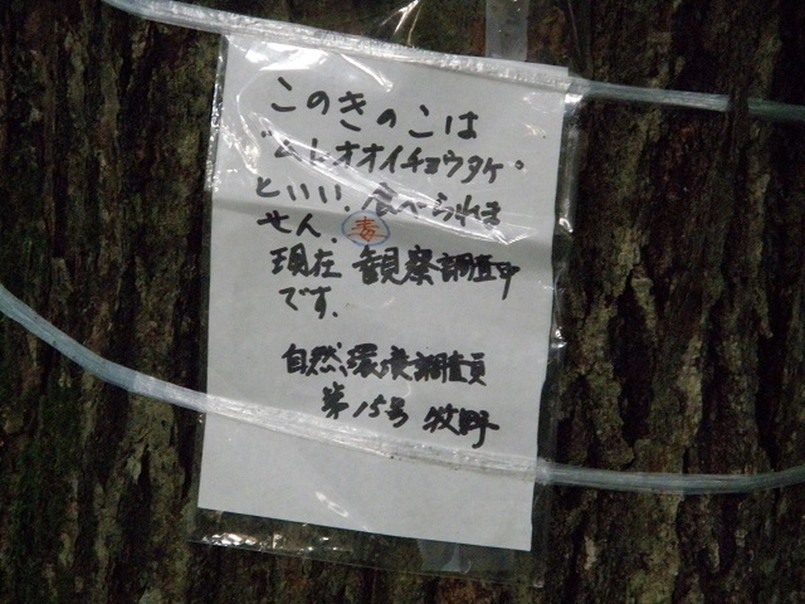 このきのこは
"ムレオオイチョウタケ"
といい、食べられま
せん. 毒
現在 観察調査中
です.
自然環境調査員
第15号 牧野